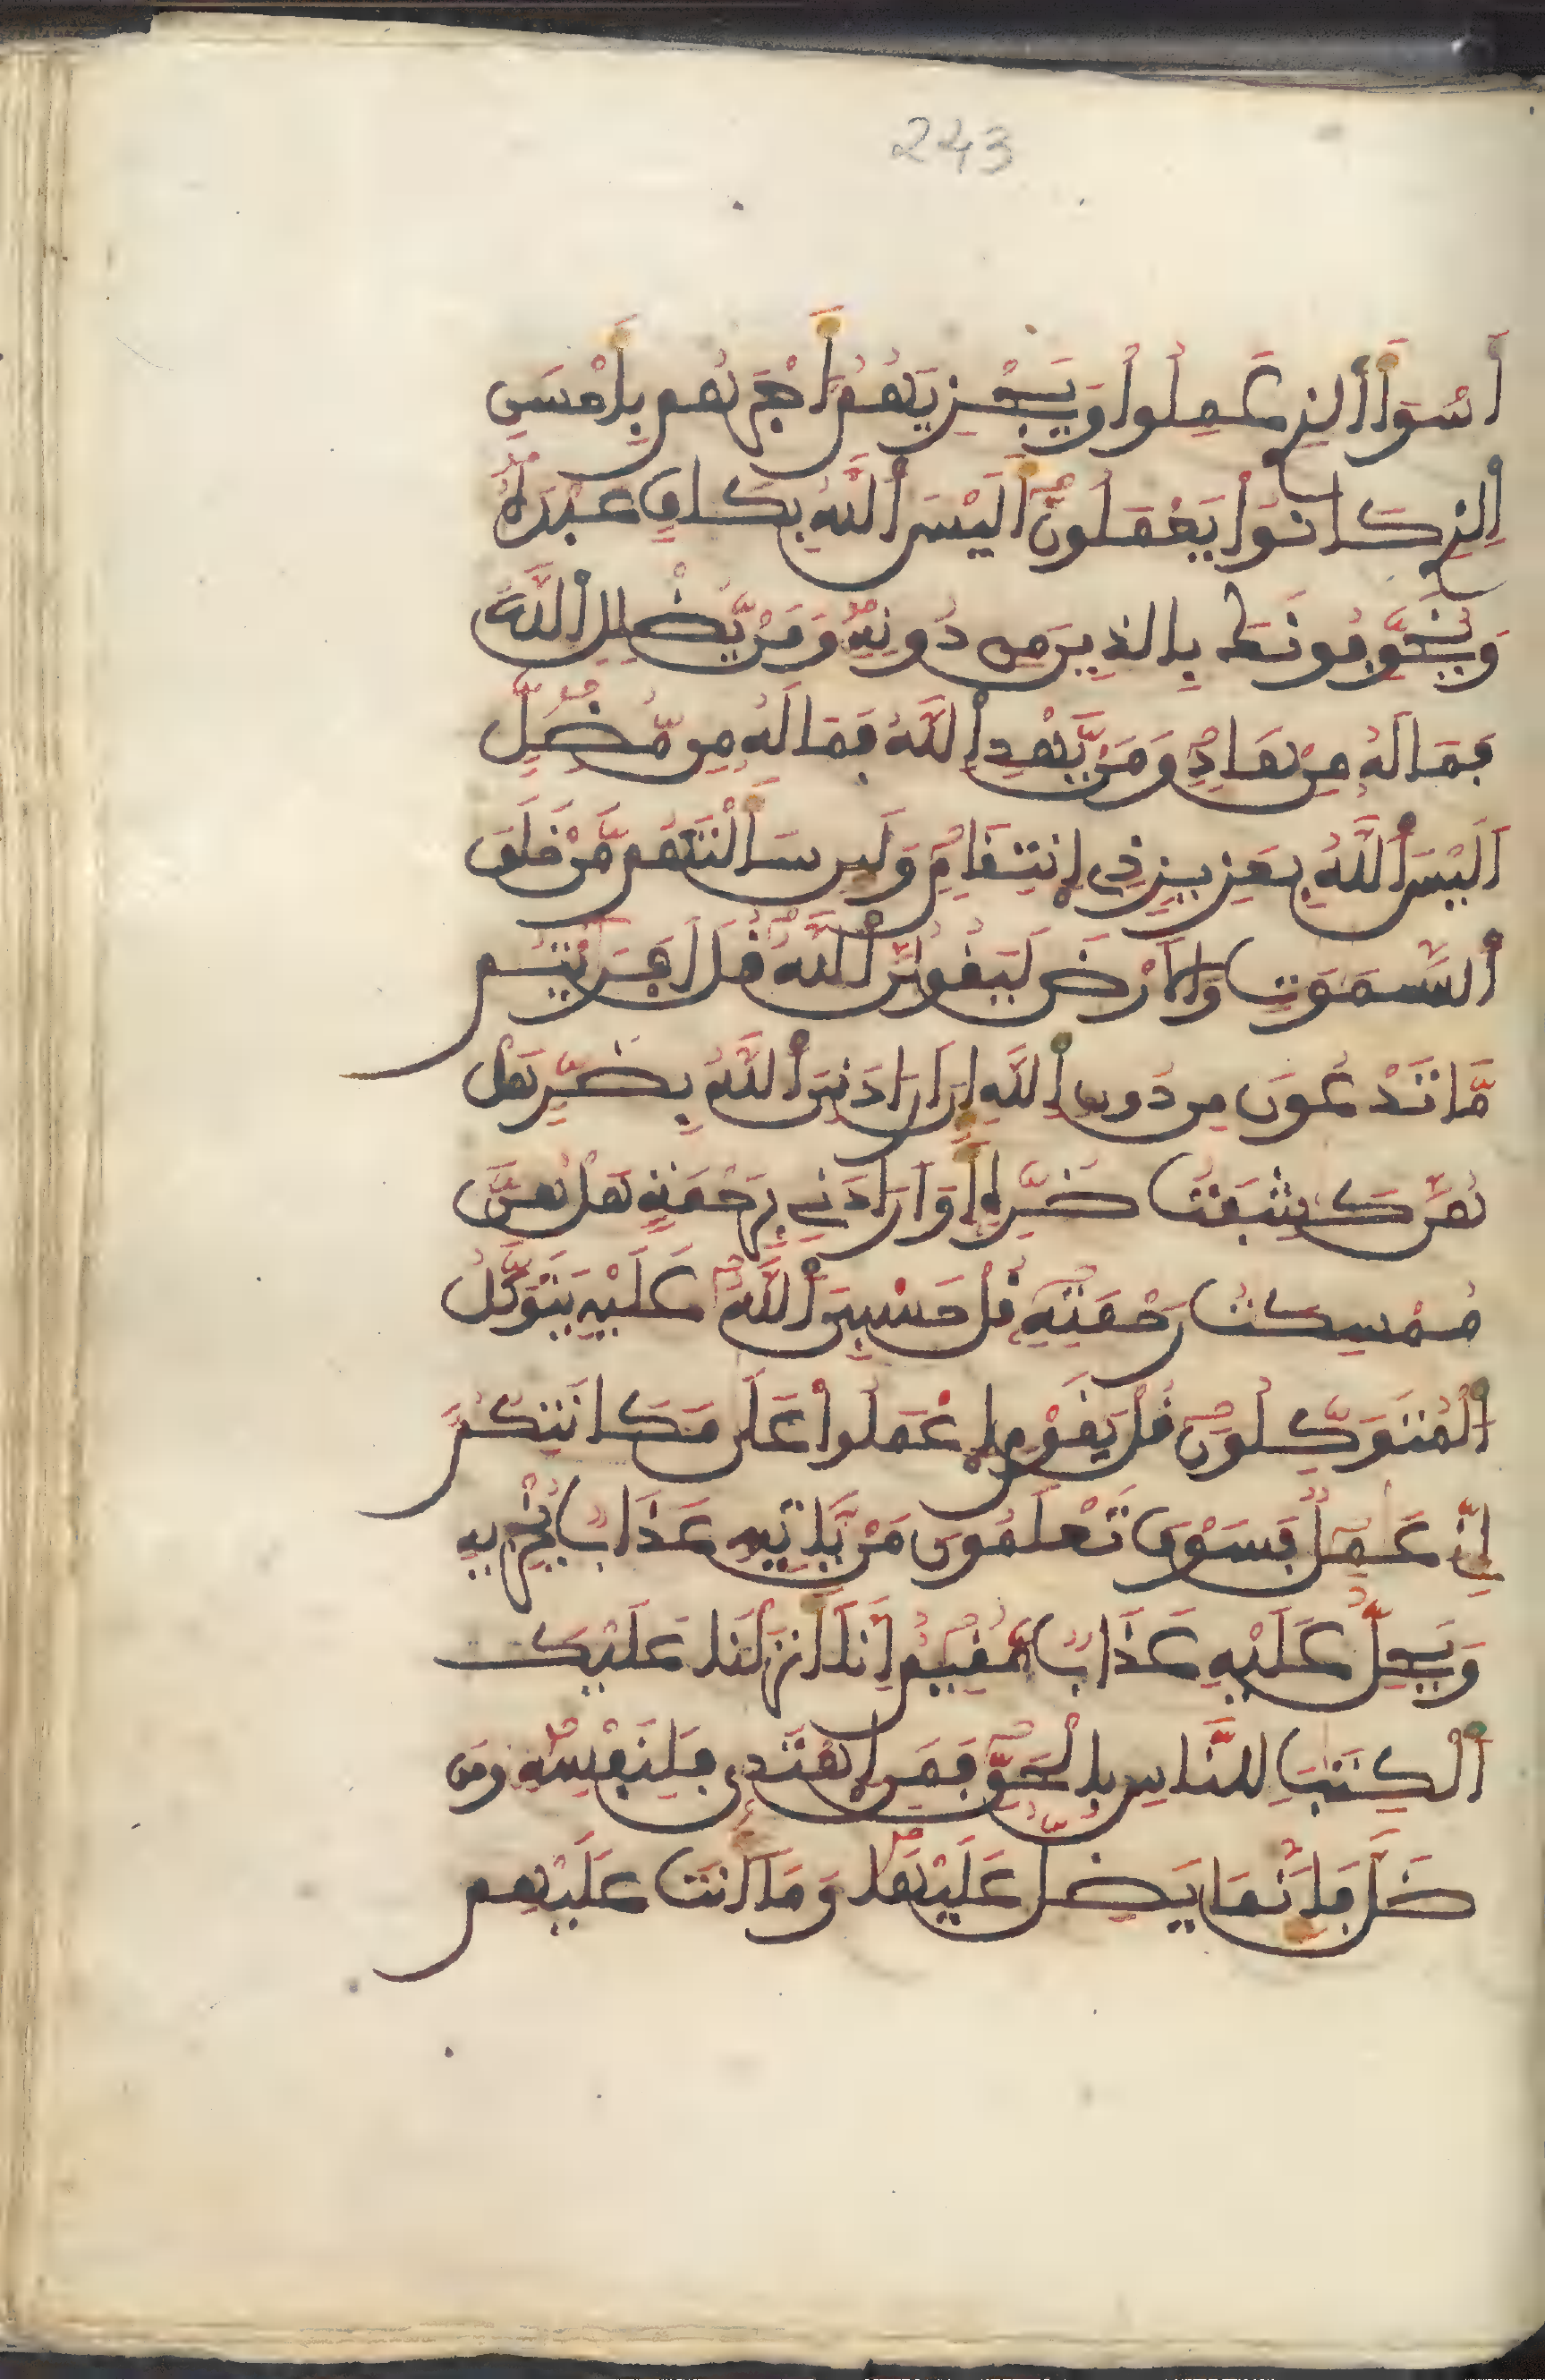 243
أَسْوَأَ ألذِے عَمِلُواْ وَيَجْزِيَهُمُۥٓ أَجْرَهُم بِأَحْسَنِ
اِلذِے كَانُواْ يَعْمَلُونَ أَلَيْسَ أَللَّهُ بِكَافٍ عَبْدَهُۥ
وَيُخَوِّفُونَكَ بِالذِينَ مِن دُونِهِۦ وَمَنْ يُّضْلِلِ أِللَّهُ
فَمَا لَهُۥ مِنْ هَادٍ وَمَنْ يَّهْدِ أِللَّهُ فَمَا لَهُۥ مِن مُّضِلٍّ
اَلَيْسَ أَللَّهُ بِعَزِيزٍ ذِے اِنتِقَامٍ وَلَئِن سَأَلْتَهُم مَّنْ خَلَقَ
أَلسَّمَٰوَٰتِ وَالَارْضَ لَيَقُولُنَّ أَللَّهُ قُلَ اَفَرَٰيْتُم
مَّا تَدْعُونَ مِن دُونِ أِللَّهِ إِنَ اَرَادَنِيَ أَللَّهُ بِضُرٍّ هَلْ
هُنَّ كَٰشِفَٰتُ ضُرِّهِۦٓ أَوَ اَرَادَنِے بِرَحْمَةٍ هَلْ هُنَّ
مُمْسِكَٰتُ رَحْمَتِهِۦ قُلْ حَسْبِيَ أَللَّهُ عَلَيْهِ يَتَوَكَّلُ
أُلْمُتَوَكِّلُونَ قُلْ يَٰقَوْمِ اِعْمَلُواْ عَلَىٰ مَكَانَتِكُمُۥٓ
إِنِّے عَٰمِلٌ فَسَوْفَ تَعْلَمُونَ مَنْ يَّأْتِيهِ عَذَابٌ يُخْزِيهِ
وَيَحِلُّ عَلَيْهِ عَذَابٌ مُّقِيمٌ اِنَّآ أَنزَلْنَا عَلَيْكَ
أَلْكِتَٰبَ لِلنَّاسِ بِالْحَقِّ فَمَنِ اِهْتَدَىٰ فَلِنَفْسِهِۦ وَمَن
ضَلَّ فَإِنَّمَا يَضِلُّ عَلَيْهَا وَمَآ أَنتَ عَلَيْهِم